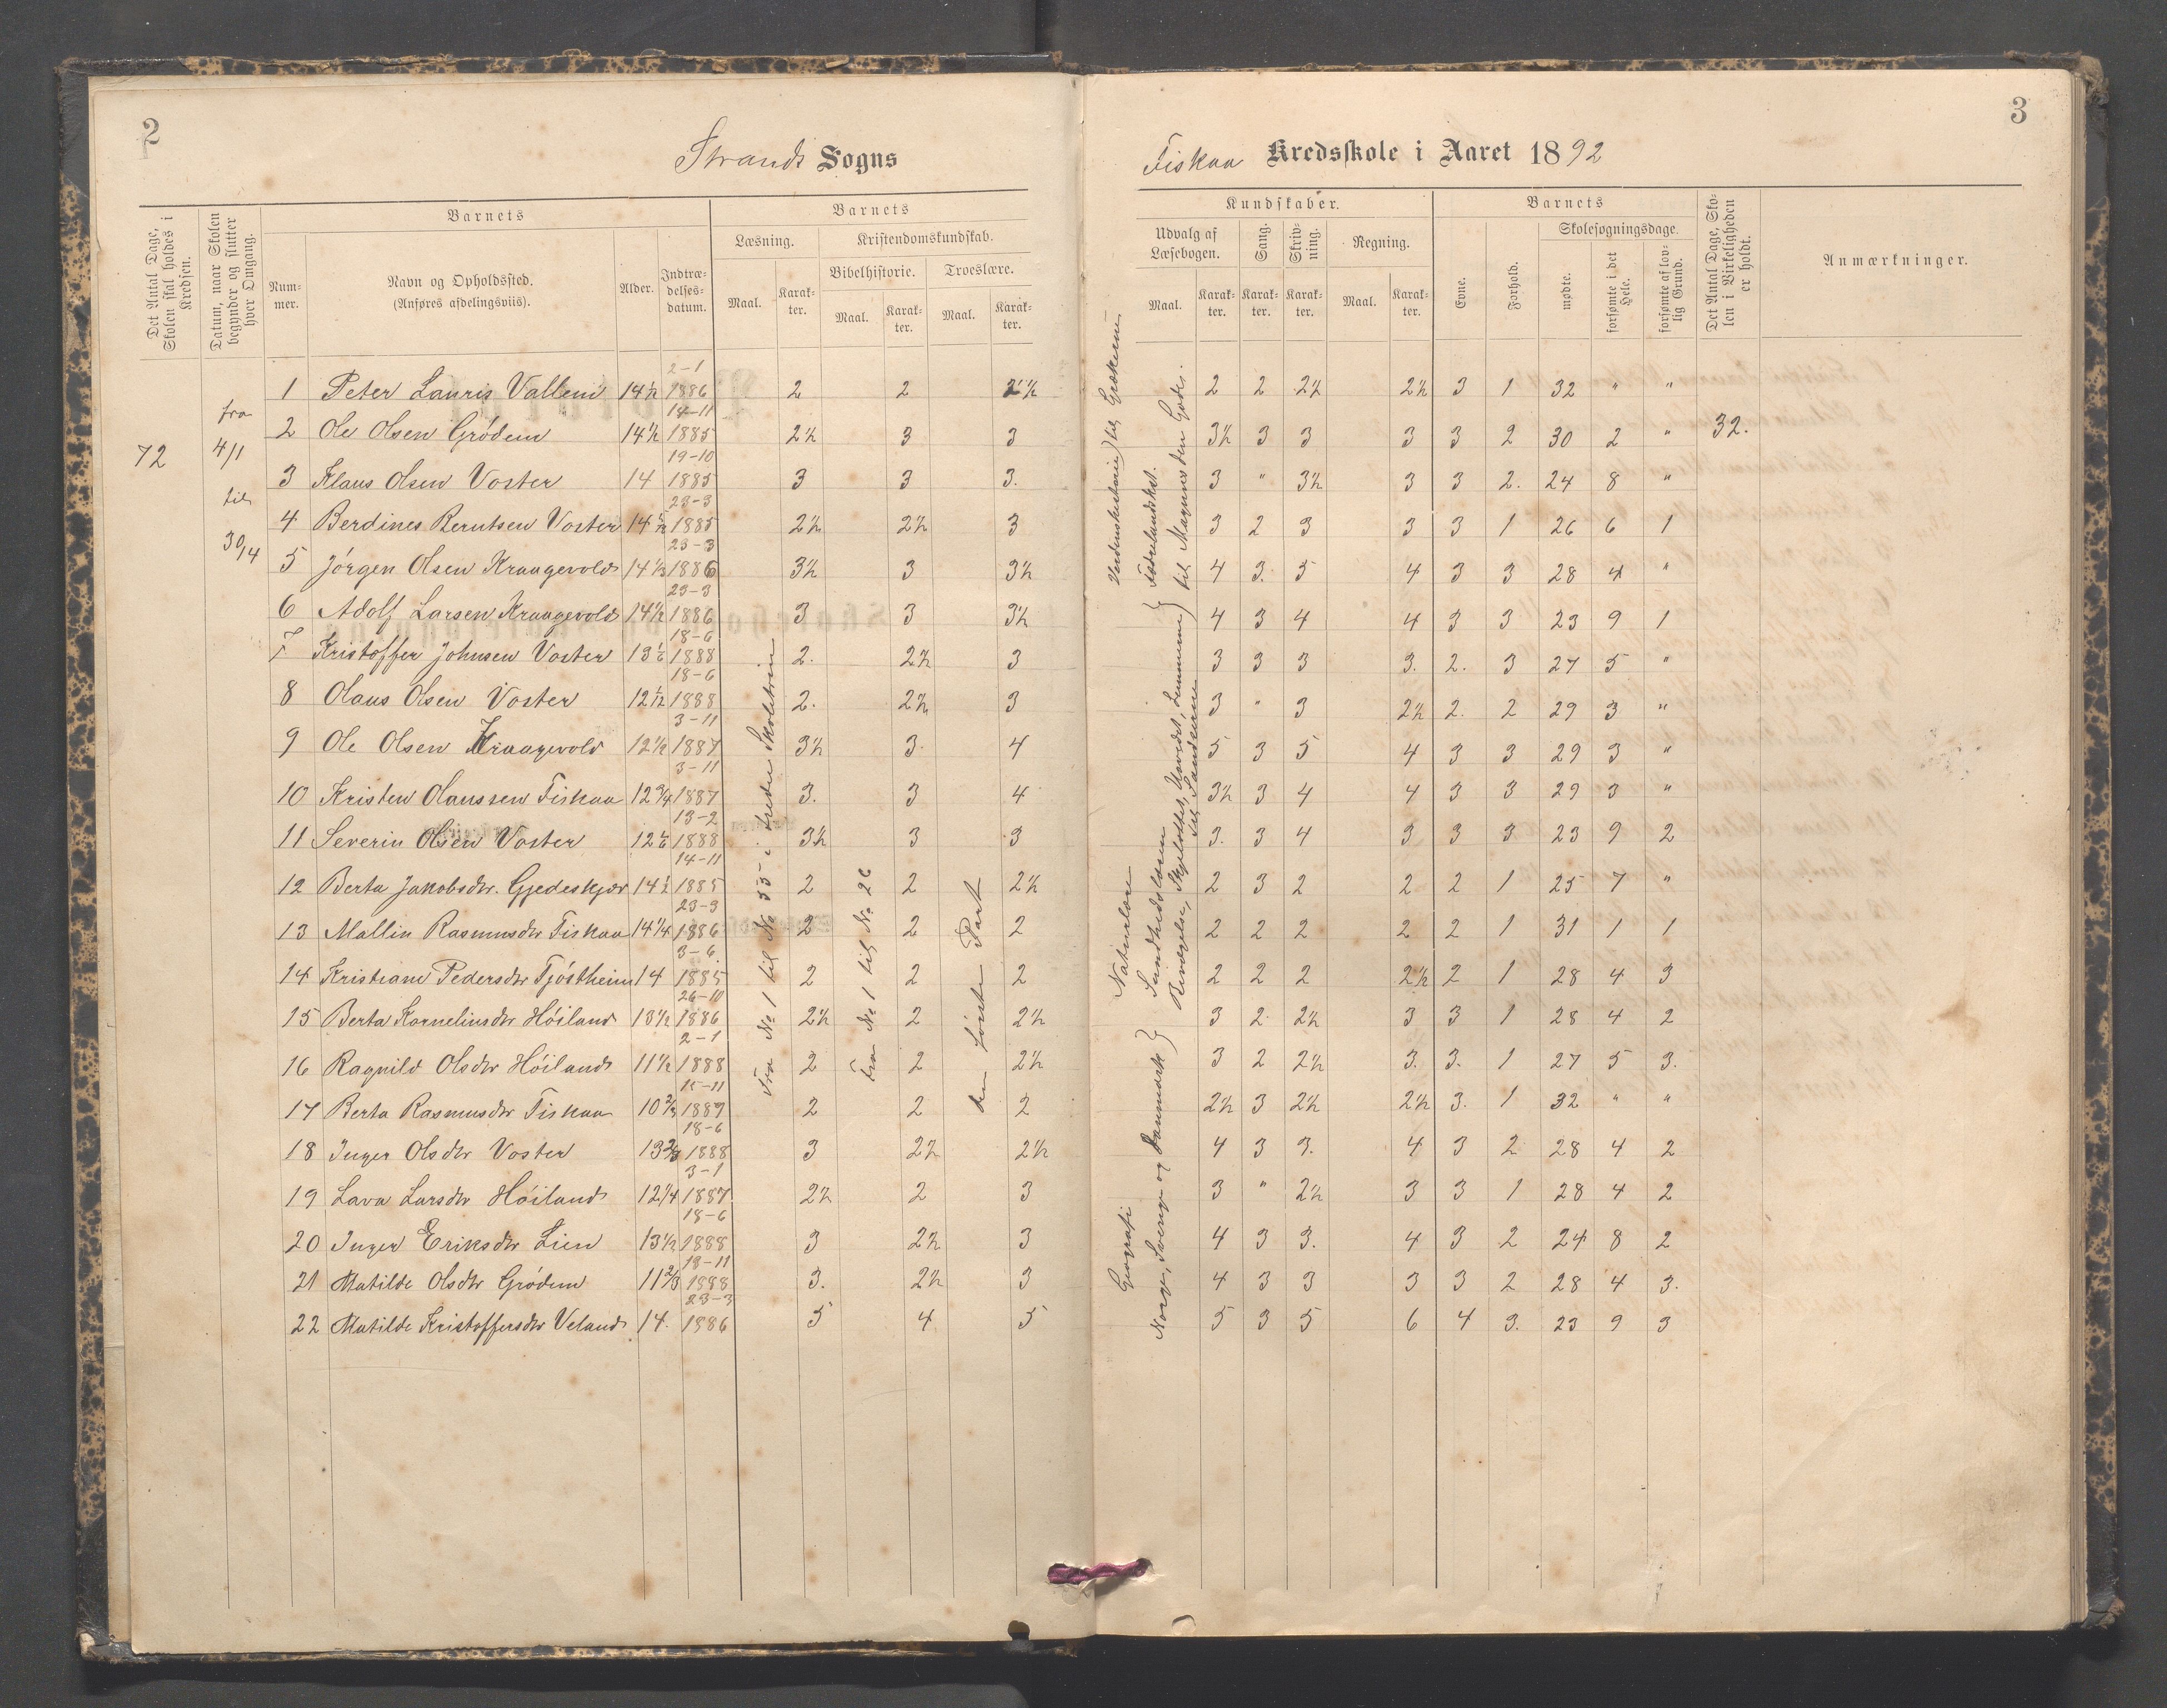 2
Strands Sogns
Det Antal Dage, Skolen skal holdes i Kredsen.
Datum, naar Skolen begynder og slutter hver Omgang.
Barnets
Barnets
Nummer.
Navn og Opholdssted.
(Anføres afdelingsviis).
Alder.
Indtrædelsesdatum.
Læsning.
Kristendomskundskab.
Bibelhistorie.
Troeslære.
Maal.
Karakter.
Maal.
Karakter.
Maal.
Karakter.
72
fra
4/1
til
30/4
1 Peter Lauris Valleni 14½ 2-1 1886 2 2 2½
2 Ole Olsen Grødem 14½ 14-11 1885 2½ 3 3
3 Klaus Olsen Voster 14 19-10 1885 3 3 3.
4 Berdines Berntsen Voster 14 23-3 1885 2½ 2½ 3
5 Jörgen Olsen Kraagevold 14⅓ 23-3 1886 3½ 3 3½
6 Adolf Larsen Kraagevold 14½ 23-3 1886 3 3 3½
7 Kristoffer Johnsen Voster 13 18-6 1888 2. 2½ 3
8 Olaus Olsen Voster 12 18-6 1888 2. 2½ 3
9 Ole Olsen Kraagevold 12½ 3-11 1887 3½ 3 4
10 Kristen Olaussen Fiskaa 12¾ 3-11 1887 3. 3 4
11 Severin Olsen Voster 12 13-2 1888 3½ 3 3
12 Berta Jakobsdtr. Gjedeskjær 14½ 14-11 1885 2 2 2½
13 Mallin Rasmusdtr Fiskaa 14¼ 23-3 1886 2 2 2
14 Kristiane Pedersdtr Tjöstheim 14 3-6 1885 2 2 2
15 Berta Korneliusdtr Höiland 13½ 26-10 1886 2½ 2 2½
16 Ragnild Olsdtr Höiland 11½ 2-1 1888 2 2 2½
17 Berta Rasmusdtr Fiskaa 10⅔ 15-11 1889 2 2 2
18 Inger Olsdtr Voster 13⅔ 18-6 1888 3 2½ 2½
19 Lava Larsdtr Höiland 12¼ 3-1 1887 2½ 2 3
20 Inger Eriksdtr Lien 13½ 18-6 1888 3 2½ 3
21 Matilde Olsdtr Grödem 11⅔ 18-11 1888 3. 2½ 3
22 Matilde Kristoffersdtr Veland 14. 23-3 1886 5 4 5
Fra No 1 til No 35 i tredie Skoletrin
Fra No 1 til No 26
den förste Part
3
Fiskaa Kredsskole i Aaret 1892
Kundskaber.
Barnets
Det Antal Dage, Skolen i Virkeligheden er holdt.
Anmærkninger.
Udvalg af Læsebogen.
Sang.
Skrivning.
Regning.
Evne.
Forhold.
Skolesøgningsdage.
mødte.
forsømte i det Hele.
forsømte af lovlig Grund.
Maal.
Karakter.
Karakter.
Karakter.
Maal.
Karakter.
Verdenshistorie) til Grækerne
Fædrelandshist. } til Magnus den Gode.
Naturlære
Sundhedslæren
Bevægelse, Skjelettet, Hovedet, Lemmerne)
til Sandserne
Geografi
Norge, Sverige og Danmark }
2 2 2½ 2½ 3 1 32 " "
3½ 3 3 3 3 2 30 2 " 32.
3 " 3½ 3 3 2. 24 8 "
3 2 3 3 3 1 26 6 1
4 3. 5 4 3 3 28 4 "
4 3 4 4 3 3 23 9 1
3 3 3 3. 2. 3 27 5 "
3 " 3 2½ 2. 2 29 3 "
5 3 5 4 3 3 29 3 "
3½ 3 4 4 3 3 29 3 "
3. 3 4 3 3 3 23 9 2
2 3 2 2 2 1 25 7 "
2 2 2 2 2 1 31 1 1
2 2 2 2½ 2 1 28 4 3
3 2 2½ 3 3 1 28 4 2
3 2 2½ 3. 3. 1 27 5 3.
2½ 3 2½ 2½ 3. 1 32 " "
4 3 3. 4 3 2 28 4 2
3 " 2½ 3 3 1 28 4 2
4 3 3. 4 3 2 24 8 2
4 3 3 3 3 2 28 4 3.
5 3 5 6 4 3. 23 9 3